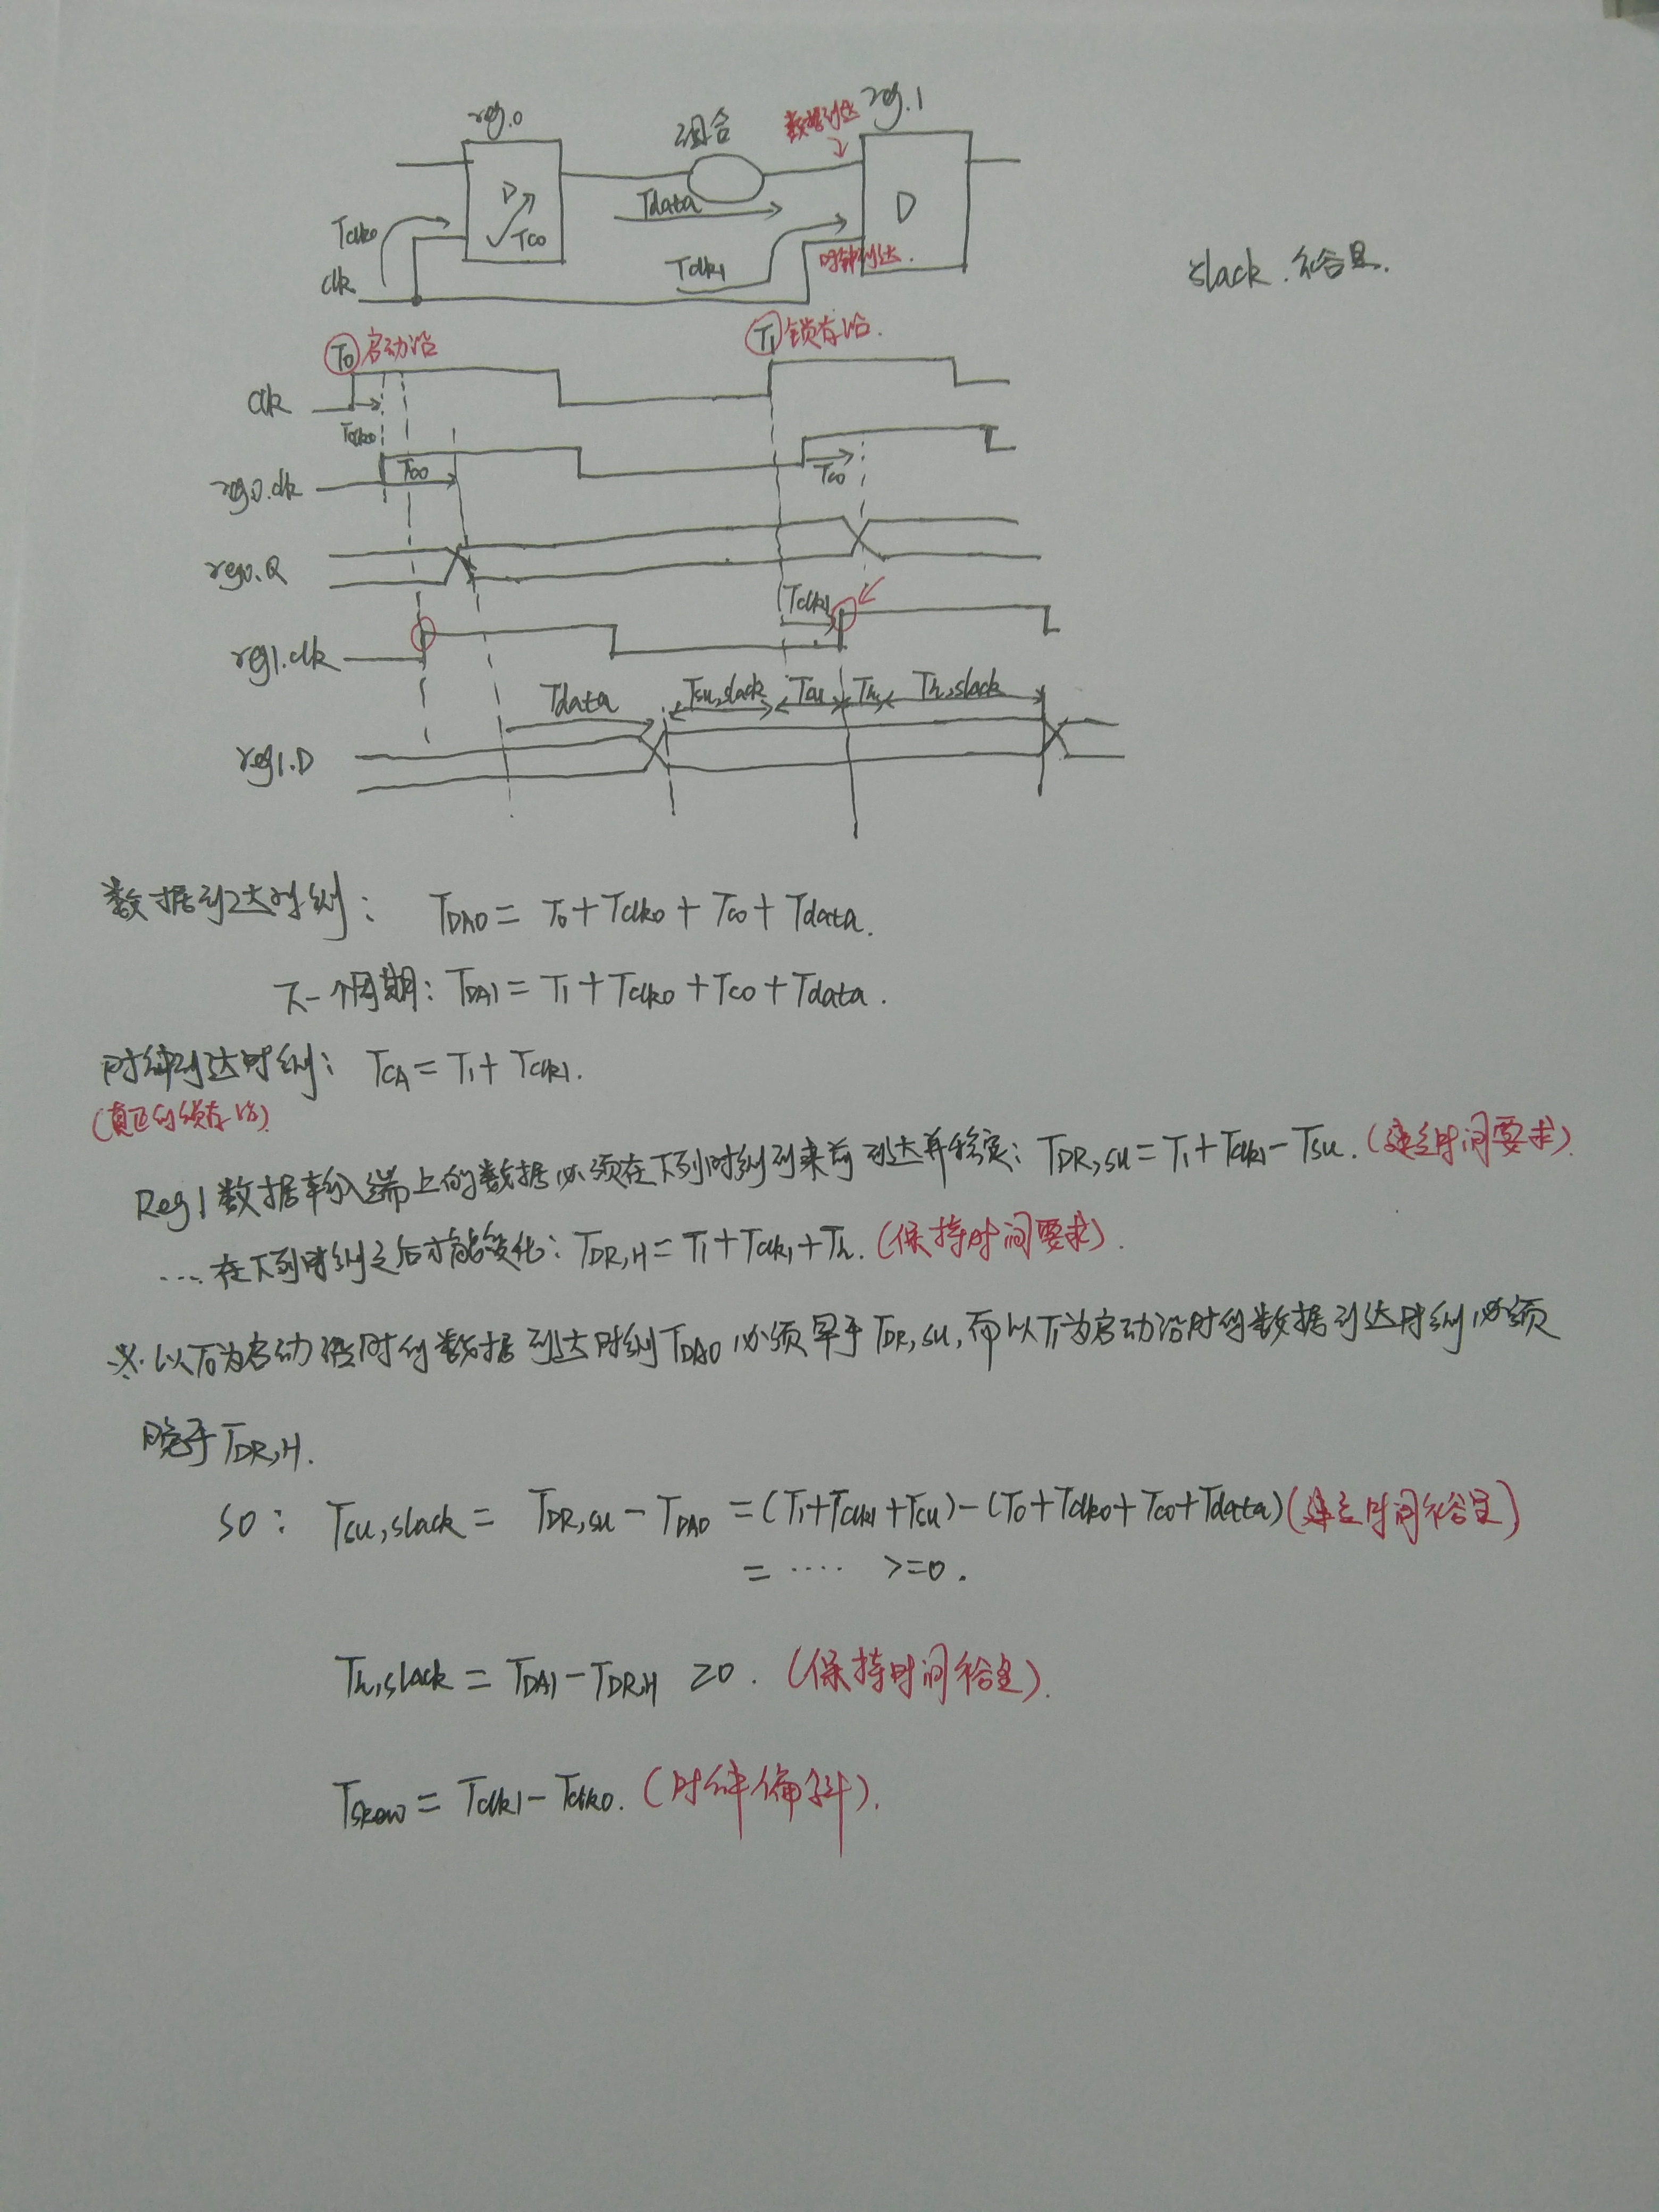 reg.0
组合
数据到达
reg.1
D
Tco
Tdata
D
Tclk0
clk
Tclk1
时钟到达.
slack.裕量.
T0 启动沿
T1 锁存沿.
clk
Tclk0
reg0.clk
Tco
Tco
reg0.Q
Tclk1
reg1.clk
Tdata
Tsu,slack
Tsu
Th
Th,slack
reg1.D
数据到达时刻: TDA0 = T0 + Tclk0 + Tco + Tdata.
下一个周期: TDA1 = T1 + Tclk0 + Tco + Tdata.
时钟到达时刻: TCA = T1 + Tclk1.
(真正的锁存沿)
Reg1数据输入端上的数据必须在下列时刻到来前到达并稳定: TDR,su = T1 + Tclk1 - Tsu. (建立时间要求).
... 在下列时刻之后才能变化: TDR,H = T1 + Tclk1 + Th. (保持时间要求).
※.以T0为启动沿时的数据到达时刻TDA0必须早于TDR,su,而以T1为启动沿时的数据到达时刻必须
晚于TDR,H.
so: Tsu,slack = TDR,su - TDA0 = (T1+Tclk1+Tsu)-(T0+Tclk0+Tco+Tdata) (建立时间裕量)
= .... >=0.
Th,slack = TDA1 - TDR,H ≥0. (保持时间裕量).
Tskew = Tclk1 - Tclk0. (时钟偏斜).